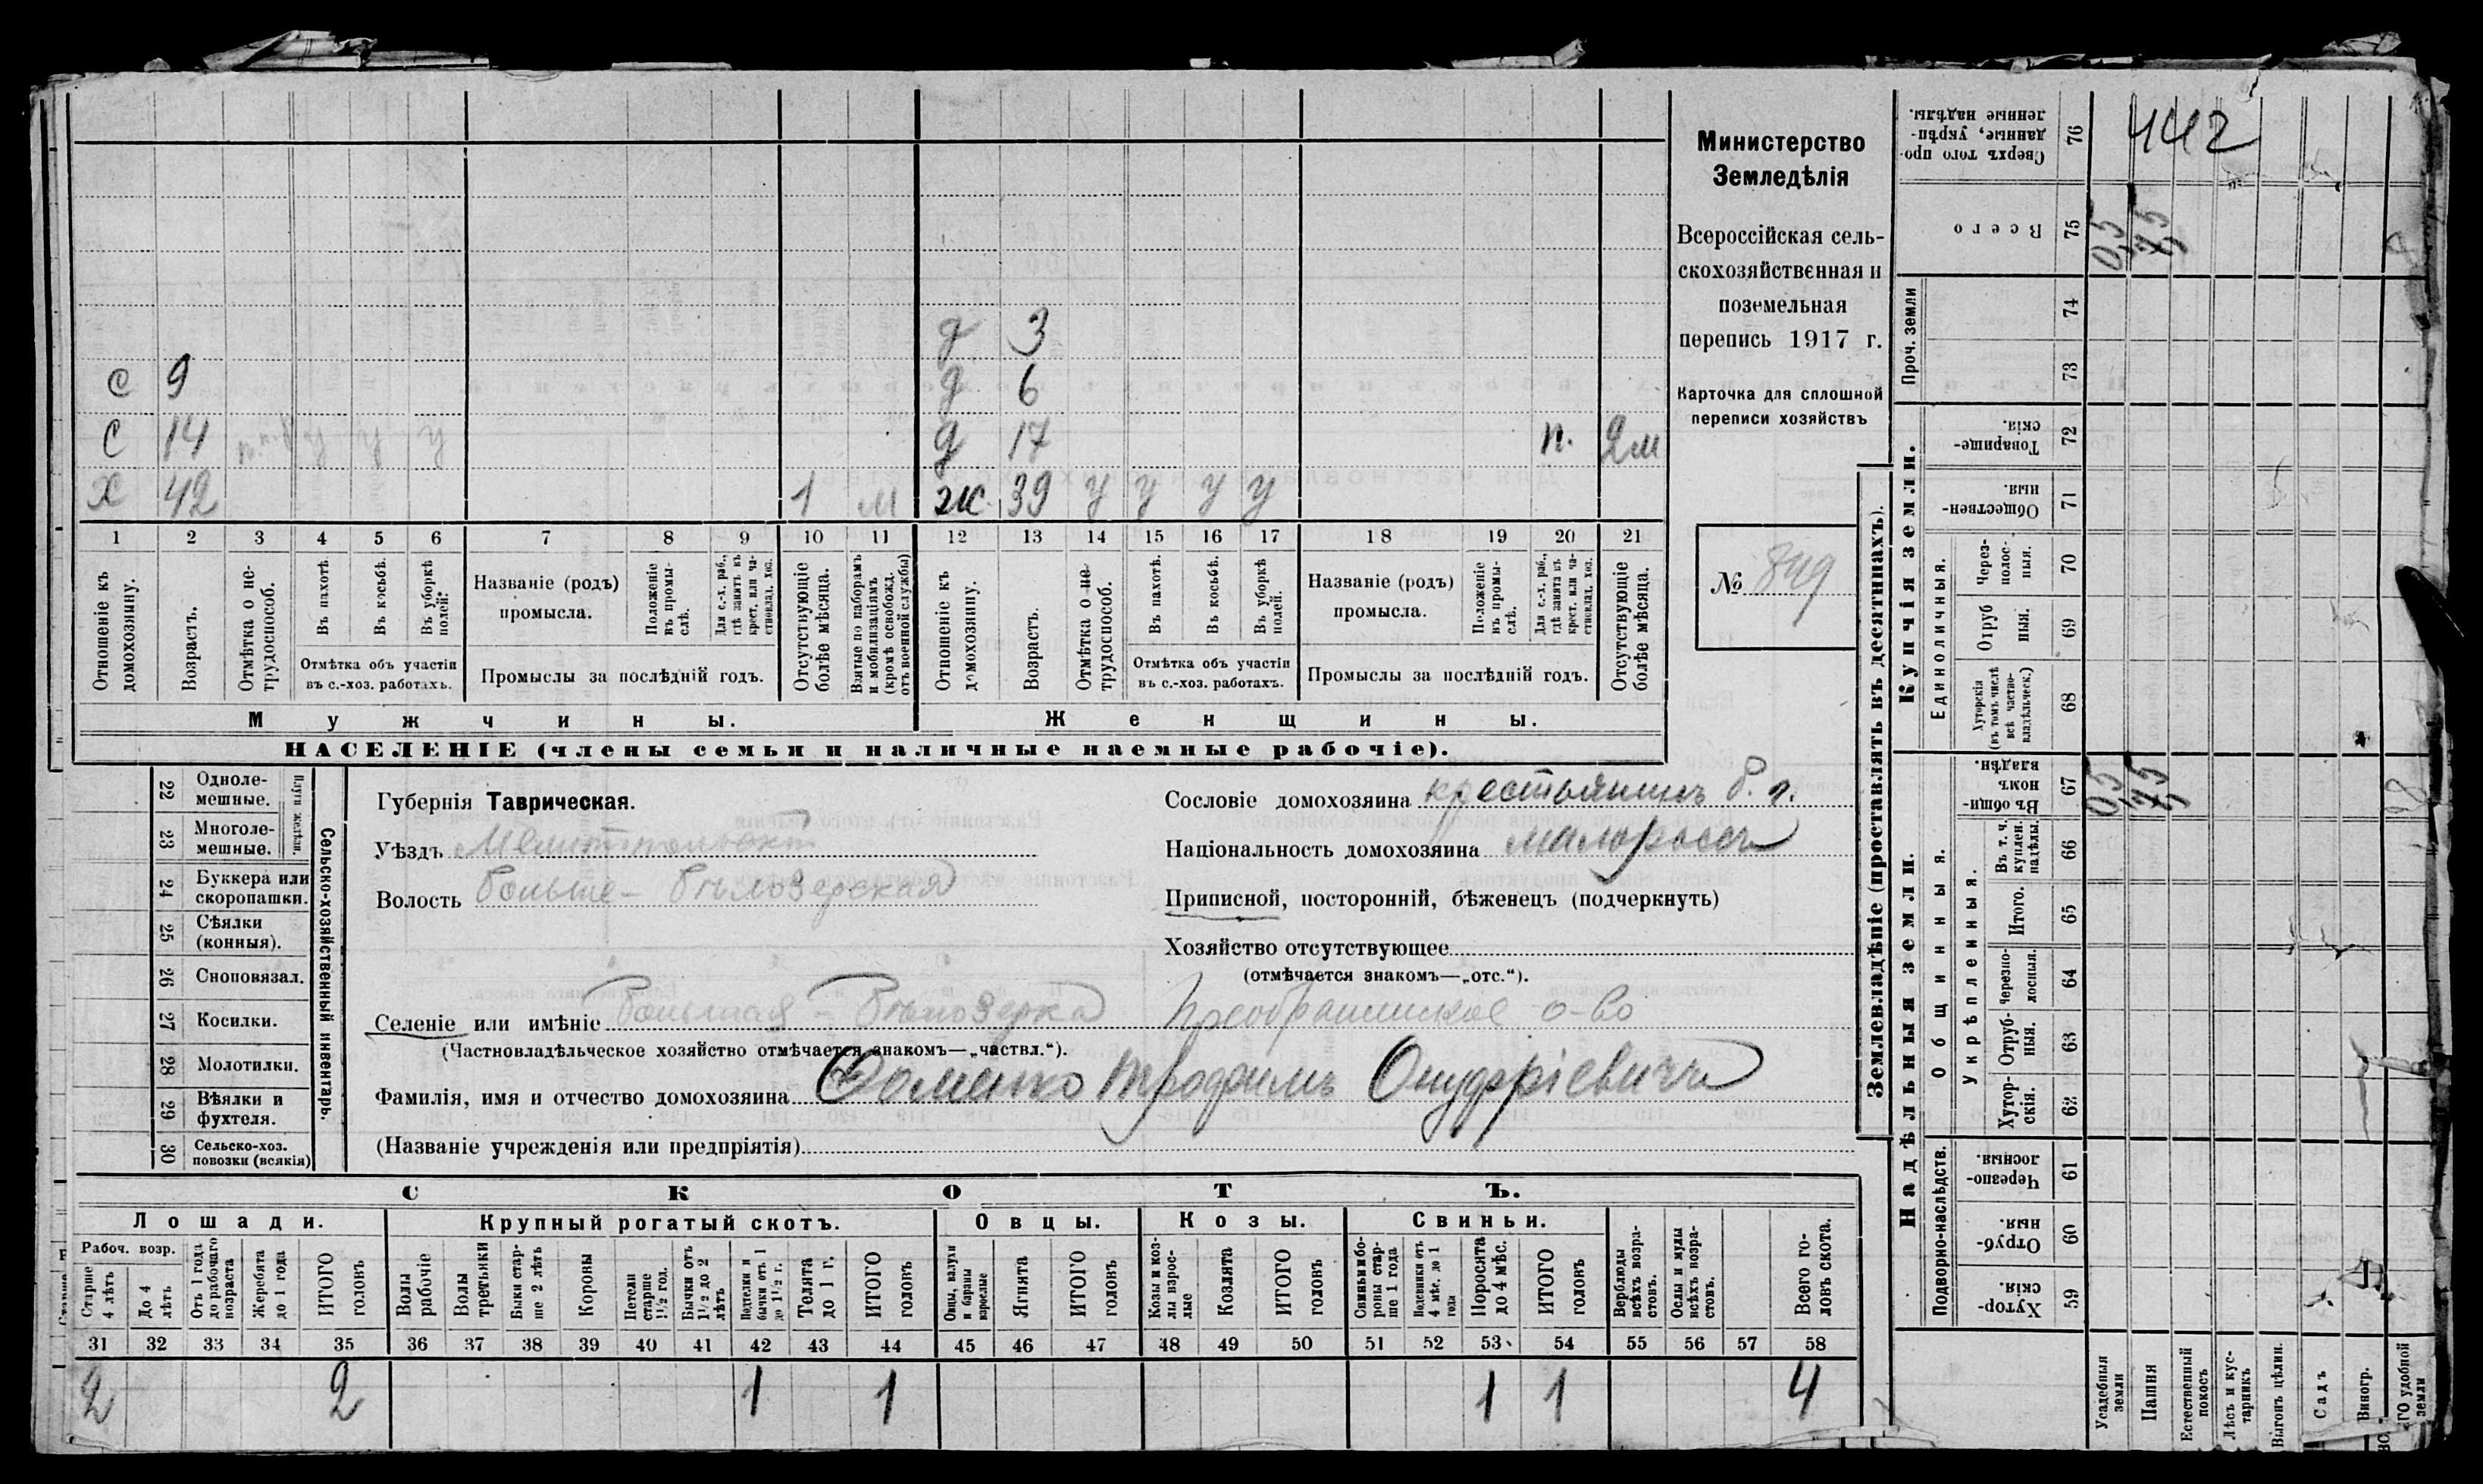 Министерство
Земледѣлія
Всероссійская сель-
скохозяйственная и
поземельная
перепись 1917 г.
Карточка для сплошной
переписи хозяйствъ
№ 849
д 3
с 9 д 6
с 14 д 17 п. 2м
х 42 1 м ж. 39 у у у у
1 2 3 4 5 6 7 8 9 10 11 12 13 14 15 16 17 18 19 20 21
Отношеніе къ домохозяину.
Возрастъ.
Отмѣтка о не-трудоспособ.
Въ пахотѣ.
Въ косьбѣ.
Въ уборкѣ полей.
Отмѣтка объ участіи
въ с.-хоз. работахъ.
Названіе (родъ)
промысла.
Положеніе въ промы-слѣ.
Для с.-х. раб., гдѣ занятъ въ крест. или ча-стновлад. хоз.
Промыслы за послѣдній годъ.
Отсутствующіе болѣе мѣсяца.
Взятые по наборамъ и мобилизаціямъ (кромѣ освобожд. отъ военной службы)
Отношеніе къ домохозяину.
Возрастъ.
Отмѣтка о не-трудоспособ.
Въ пахотѣ.
Въ косьбѣ.
Въ уборкѣ полей.
Отмѣтка объ участіи
въ с.-хоз. работахъ.
Названіе (родъ)
промысла.
Положеніе въ промы-слѣ.
Для с.-х. раб., гдѣ занята въ крест. или ча-стновлад. хоз.
Промыслы за послѣдній годъ.
Отсутствующіе болѣе мѣсяца.
Мужчины. Женщины.
НАСЕЛЕНІЕ (члены семьи и наличные наемные рабочіе).
Сельско-хозяйственный инвентарь.
22 Одноле-мешные.
23 Многоле-мешные.
24 Буккера или скоропашки.
25 Сѣялки (конныя).
26 Сноповязал.
27 Косилки.
28 Молотилки.
29 Вѣялки и фухтеля.
30 Сельско-хоз. повозки (всякія)
Губернія Таврическая.
Уѣздъ Мелитопольскій
Волость Больше-Бѣлозерская
Сословіе домохозяина крестьянинъ б. г.
Національность домохозяина малороссъ
Приписной, посторонній, бѣженецъ (подчеркнуть)
Хозяйство отсутствующее
(отмѣчается знакомъ—„отс.“).
Селеніе или имѣніе Большая-Бѣлозерка Преображенское о-во
(Частновладѣльческое хозяйство отмѣчается знакомъ—„частвл.“).
Фамилія, имя и отчество домохозяина Фоменко Трофимъ Онуфріевичъ
(Названіе учрежденія или предпріятія)
СКОТЪ.
Лошади. Крупный рогатый скотъ. Овцы. Козы. Свиньи.
Рабоч. возр.
Старше 4 лѣтъ
До 4 лѣтъ
Отъ 1 года до рабочаго возраста
Жеребята до 1 года
ИТОГО головъ
Волы рабочіе
Волы третьяки
Быки стар-ше 2 лѣтъ
Коровы
Нетели старше 1½ год.
Бычки отъ 1½ до 2 лѣтъ
Подтелки и бычки отъ 1 до 1½ г.
Телята до 1 г.
ИТОГО головъ
Овцы, валухи и бараны взрослые
Ягнята
ИТОГО головъ
Козы и коз-лы взрос-лые
Козлята
ИТОГО головъ
Свиньи и бо-ровы стар-ше 1 года
Подсвинки отъ 4 мѣс. до 1 года
Поросята до 4 мѣс.
ИТОГО головъ
Верблюды всѣхъ возра-стовъ.
Ослы и мулы всѣхъ возра-стовъ.
Всего го-ловъ скота.
31 32 33 34 35 36 37 38 39 40 41 42 43 44 45 46 47 48 49 50 51 52 53 54 55 56 57 58
2 2 1 1 1 1 4
Землевладѣніе (проставлять въ десятинахъ).
76 Сверхъ того про-данные, укрѣп-ленные надѣлы.
442
75 Всего
Купчія земли.
Проч. земли
74
73
72 Товарище-скія.
71 Обществен-ныя.
Единоличныя.
70 Через-полос-ныя.
69 Отруб-ныя.
68 Хуторскія (въ томъ числѣ всѣ частно-владѣльческ.)
Надѣльныя земли.
Общинныя.
67 Въ общин-номъ владѣн.
Укрѣпленныя.
66 Въ т. ч. куплен. надѣлы.
65 Итого.
64 Черезпо-лосныя.
63 Отруб-ныя.
62 Хутор-скія.
Подворно-наслѣдств.
61 Черезпо-лосныя.
60 Отруб-ныя.
59 Хутор-скія.
Усадебныя земли
Пашня
Естественный покосъ
Лѣсъ и кус-тарникъ
Выгонъ цѣлин.
Садъ
Виногр.
удобной земли